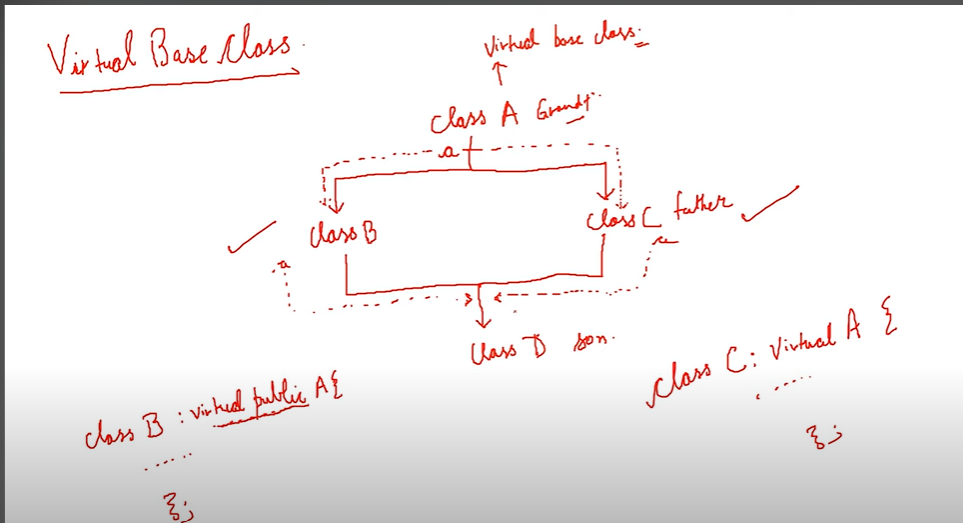 Virtual Base Class.
virtual base class:
class A Grandf.
a
class B
class C father
a
a
class D son.
class B : virtual public A{
......
};
class C: virtual A {
......
};